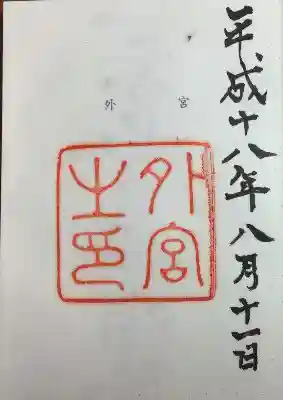 平成十八年八月十一日
外宮
外宮之印